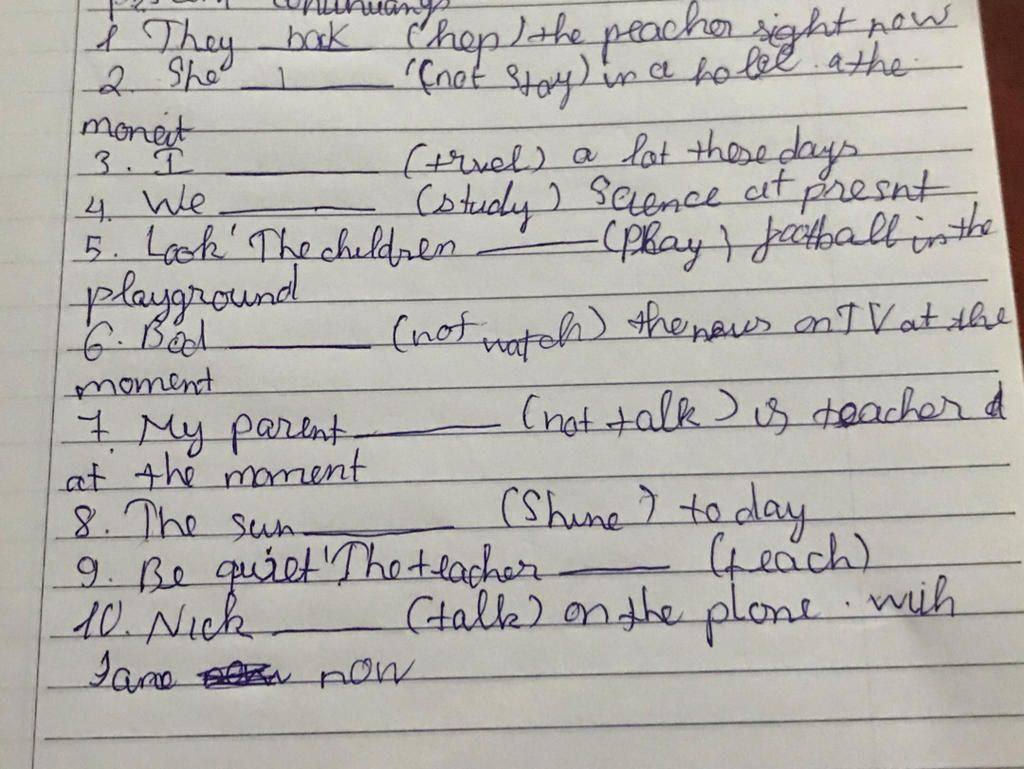 continuang
1 They ____ (hep) the peacher right now
2. She ____ (not stay) in a hotel . athe
moneit
3. I ____ (truel) a lot these days
4. We ____ (study) Science at presnt
5. Look' The children ____ (play) football in the
playground
6. Bod ____ (not watch) the news on TV at the
moment
7. My parent ____ (not talk) is teacher
at the moment
8. The sun ____ (Shine) today
9. Be quiet' The teacher ____ (teach)
10. Nick ____ (talk) on the plone . with
Jane now